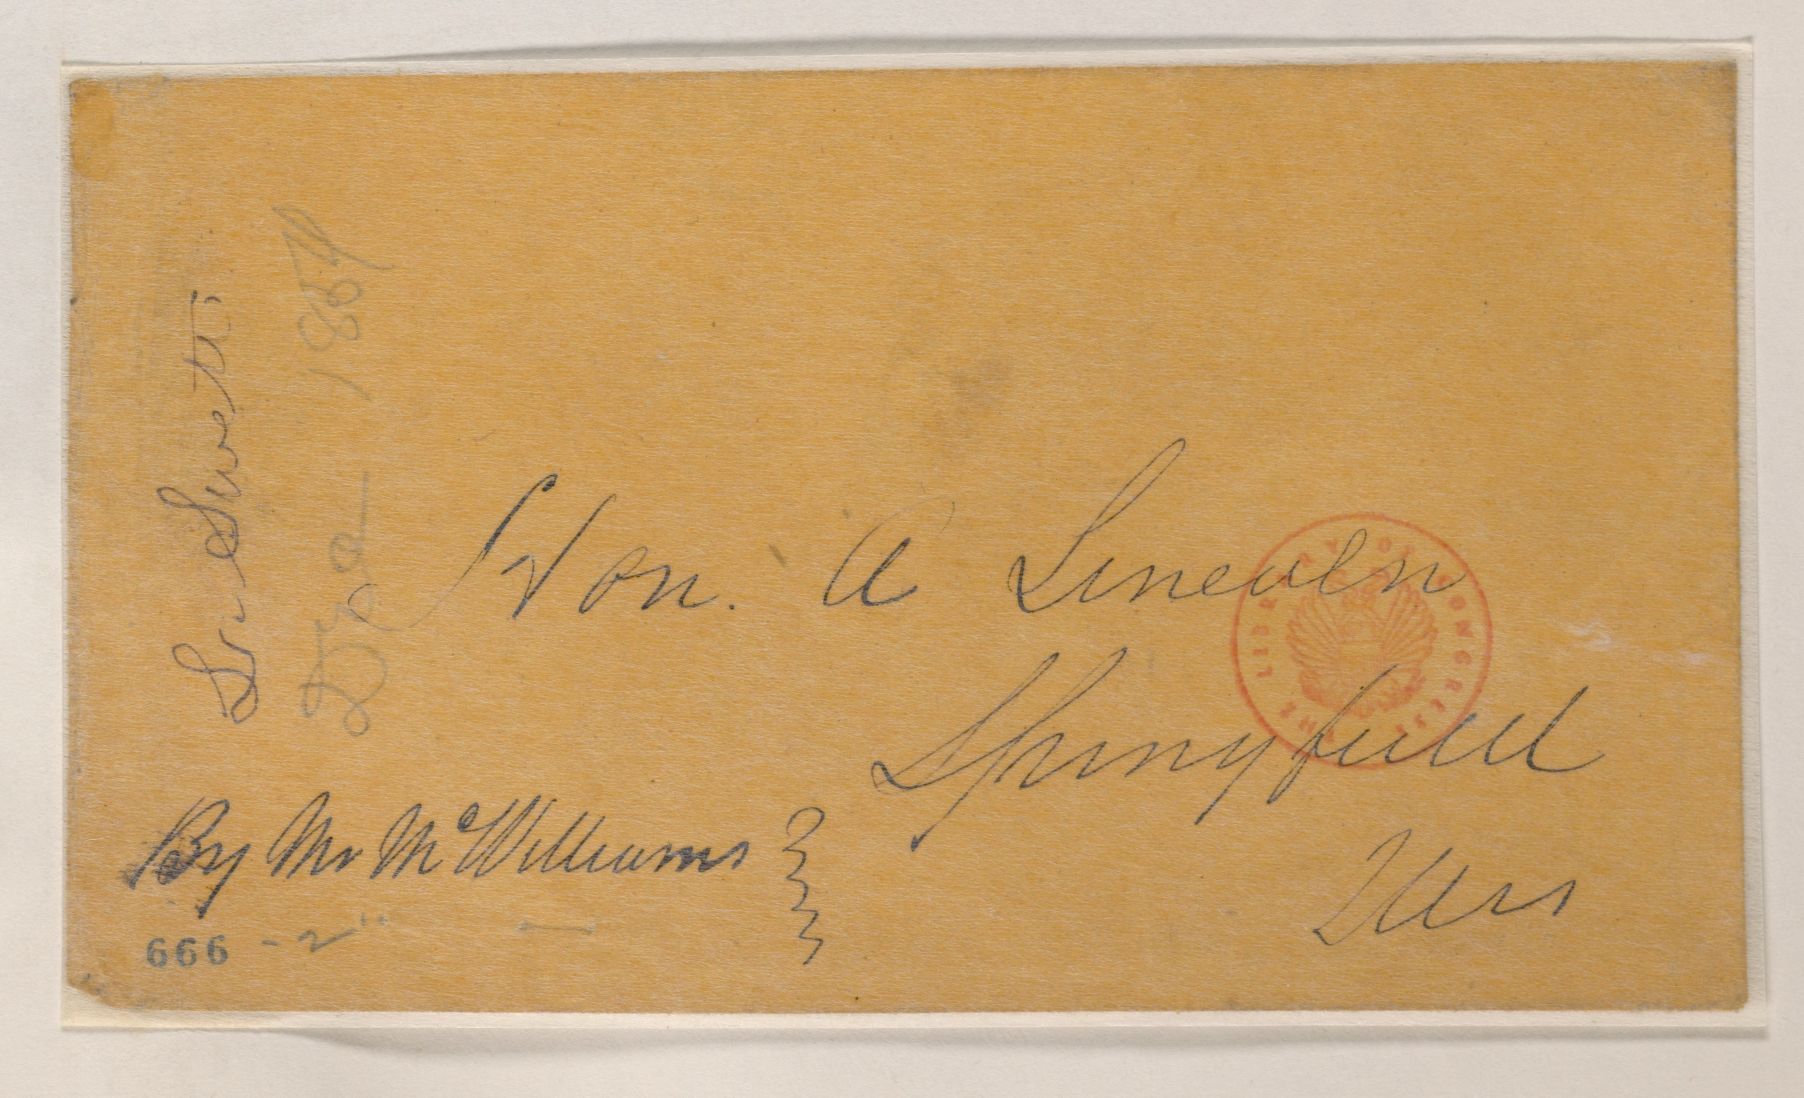 L. Swett.
Dec — 1854
Hon. A Lincoln
Springfield
Ills
By Mr McWilliams
666 - 2"
THE LIBRARY OF CONGRESS